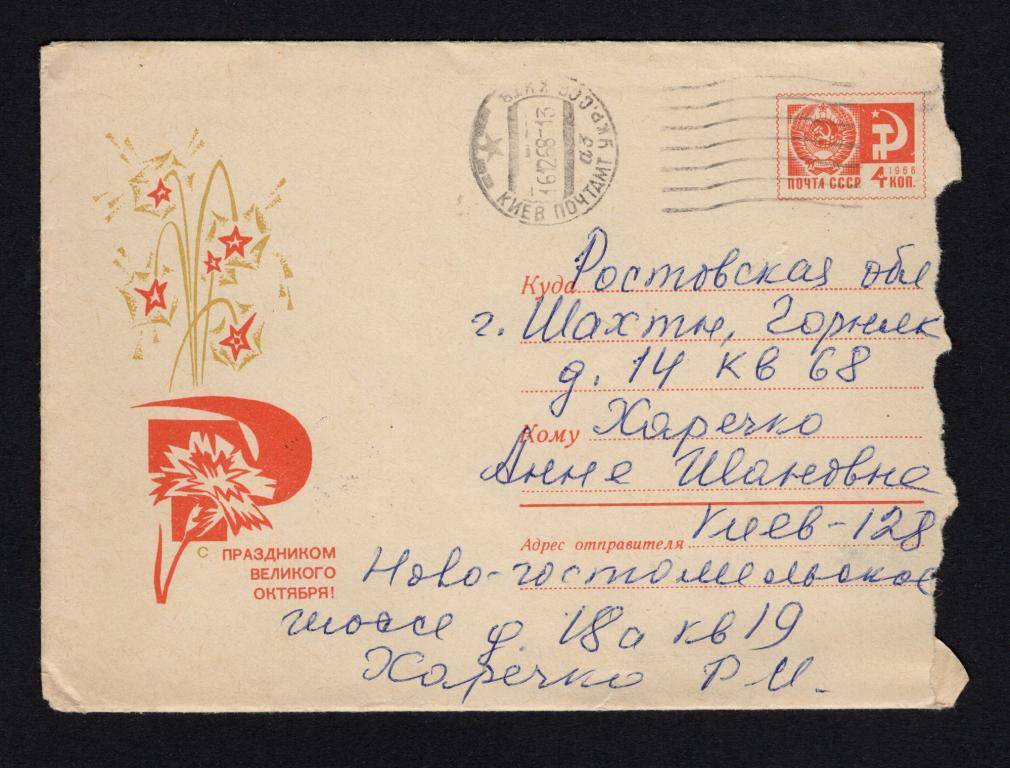 УКР. ССР
КИЕВ ПОЧТАМТ
аз
16.12.68-13
ПОЧТА СССР
1966
4 КОП.
Куда Ростовская обл
г. Шахты, Горняк
д. 14 кв 68
Кому Харечко
Анне Ивановне
Киев-128
Адрес отправителя
Ново-гостомельское
шоссе д. 18а кв 19
Харечко Р И.
С ПРАЗДНИКОМ
ВЕЛИКОГО
ОКТЯБРЯ!